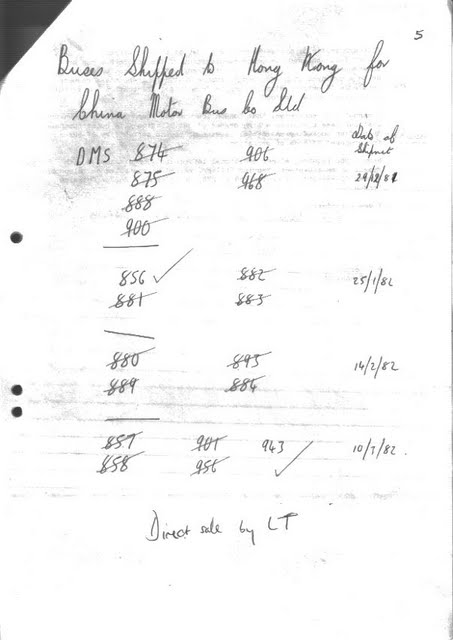 5
Buses Shipped to Hong Kong for
China Motor Bus Co Ltd
Date of
Shipment
DMS 874 906
875 968 29/12/81
888
900
856 ✓ 882 25/1/82
881 883
880 893 14/2/82
889 884
857 901 943 10/3/82.
858 956 ✓
Direct sale by LT